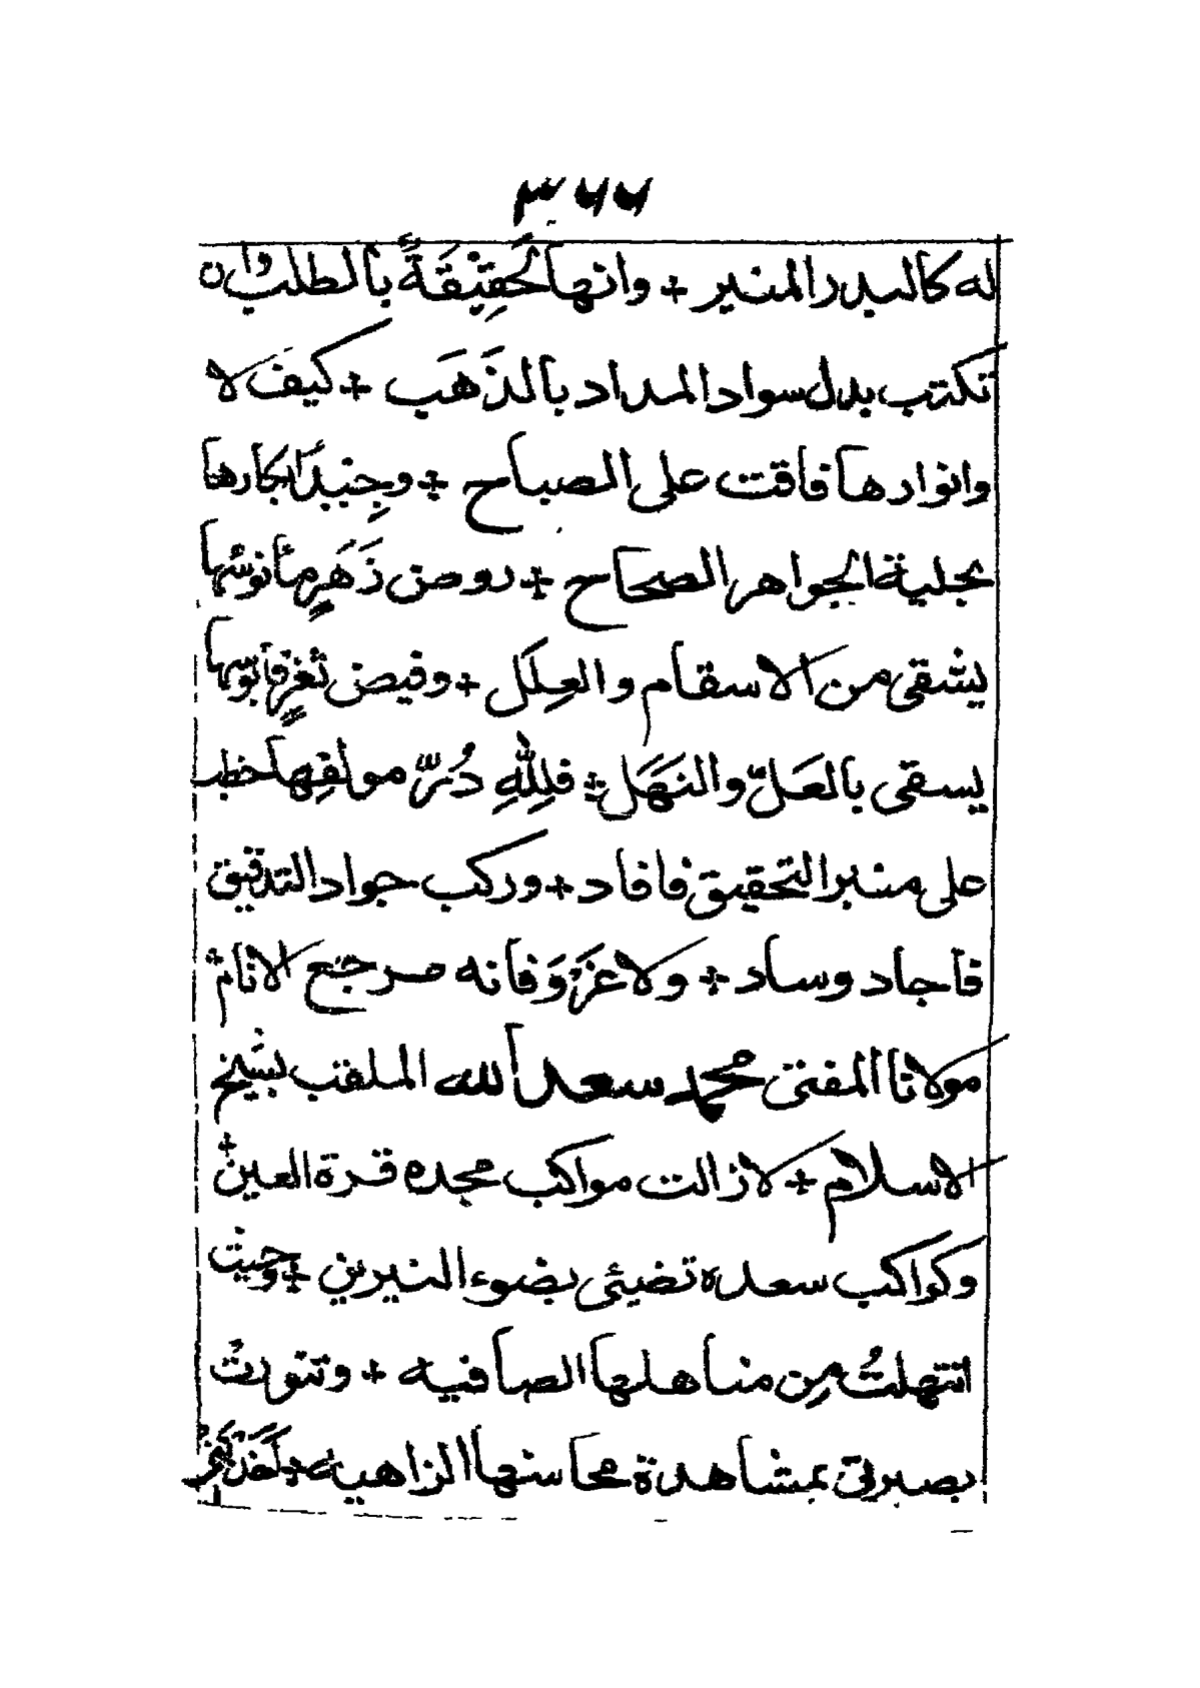 ٣٧٧
له كالبدر المنير + وانها لَحَقِيْقَةً بالطلب وان
تكتب بدل سواد المداد بالذَهَب + كيف لا
وانوارها فاقت على الصباح + وجِيْدُ ابكارها
بحلية الجواهر الصحاح + روض زَهَرٍ مأنوسها
يشفى من الاسقام والعِلَل + وفيض ثغرٍ قابوسها
يسقى بالعَلّ والنَهَل + فلِلّٰهِ دُرّ مولفِها خطب
على منبر التحقيق فافاد + وركب جواد التدقيق
فاجاد وساد + ولا غَرْوَ فانه مرجع الانام +
مولانا المفتى محمد سعد الله الملقب بشيخ
الاسلام + لا زالت مواكب مجده قرة العين +
وكواكب سعده تضيئى بضوء النيرين + وحيث
انتهلتُ مِن مناهلها الصافيه + وتنورت
بصيرتى بمشاهدة محاسنها الزاهيه +